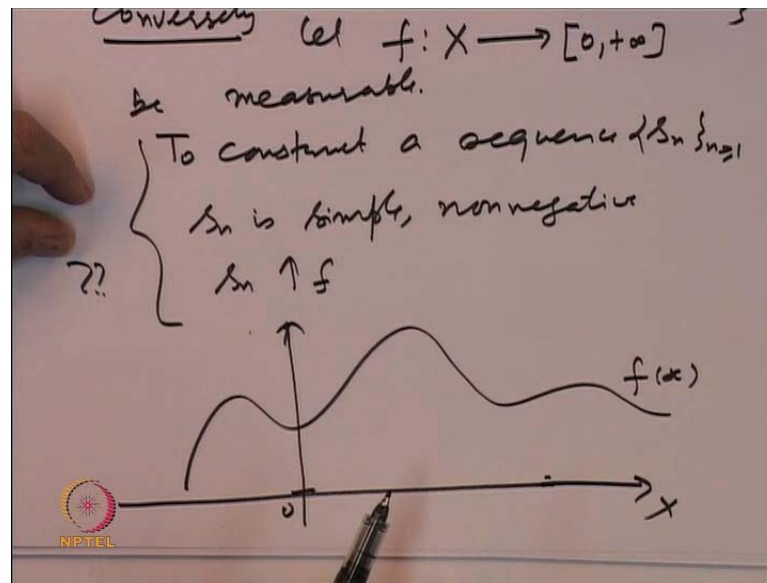 Conversely let f : X → [0, +∞]
be measurable.
To construct a sequence {sn}n≥1
sn is simple, nonnegative
?? sn ↑ f
f(x)
0
X
NPTEL